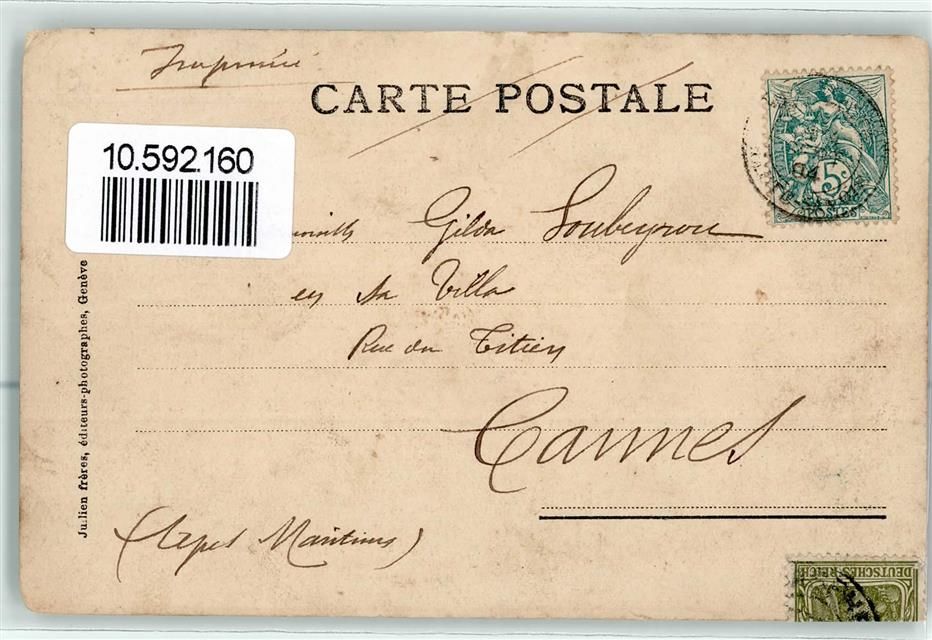 Imprimé
CARTE POSTALE
10.592.160
Gilda Soubeyran
en sa Villa
Rue du Titien
Cannes
(Alpes Maritimes)
Julien frères, éditeurs-photographes, Genève
5c
POSTES
04
DEUTSCHES REICH